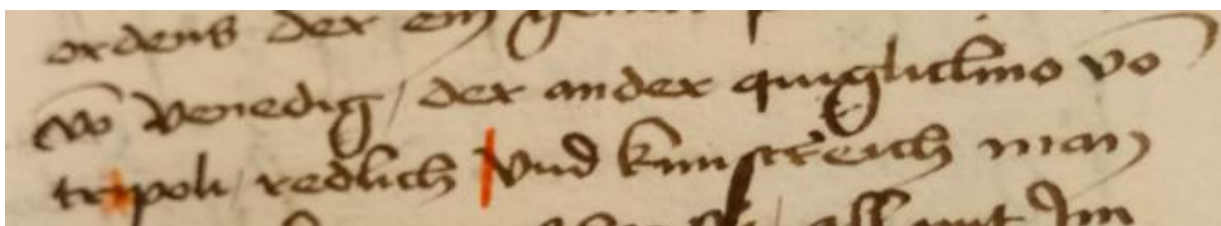 ordens der ein
vo̅ venedig / der ander quiglielmo vo̅
tripoli / redlich vnd kunstreich man